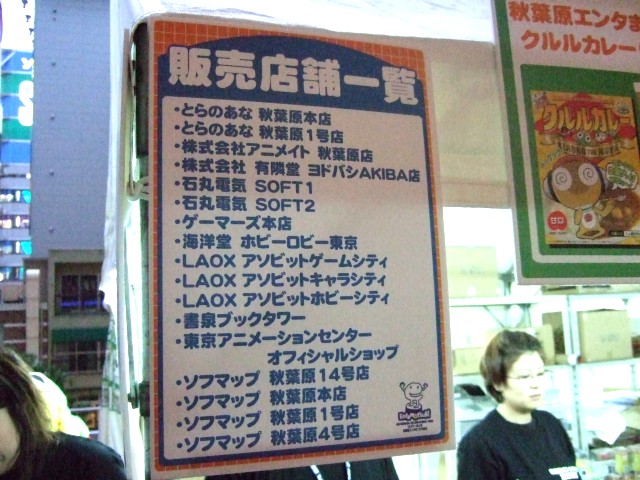 販売店舗一覧
・とらのあな 秋葉原本店
・とらのあな 秋葉原1号店
・株式会社アニメイト 秋葉原店
・株式会社 有隣堂 ヨドバシAKIBA店
・石丸電気 SOFT1
・石丸電気 SOFT2
・ゲーマーズ本店
・海洋堂 ホビーロビー東京
・LAOX アソビットゲームシティ
・LAOX アソビットキャラシティ
・LAOX アソビットホビーシティ
・書泉ブックタワー
・東京アニメーションセンター
オフィシャルショップ
・ソフマップ 秋葉原14号店
・ソフマップ 秋葉原本店
・ソフマップ 秋葉原1号店
・ソフマップ 秋葉原4号店
秋葉原エンタま
クルルカレー
クルルカレー
甘口